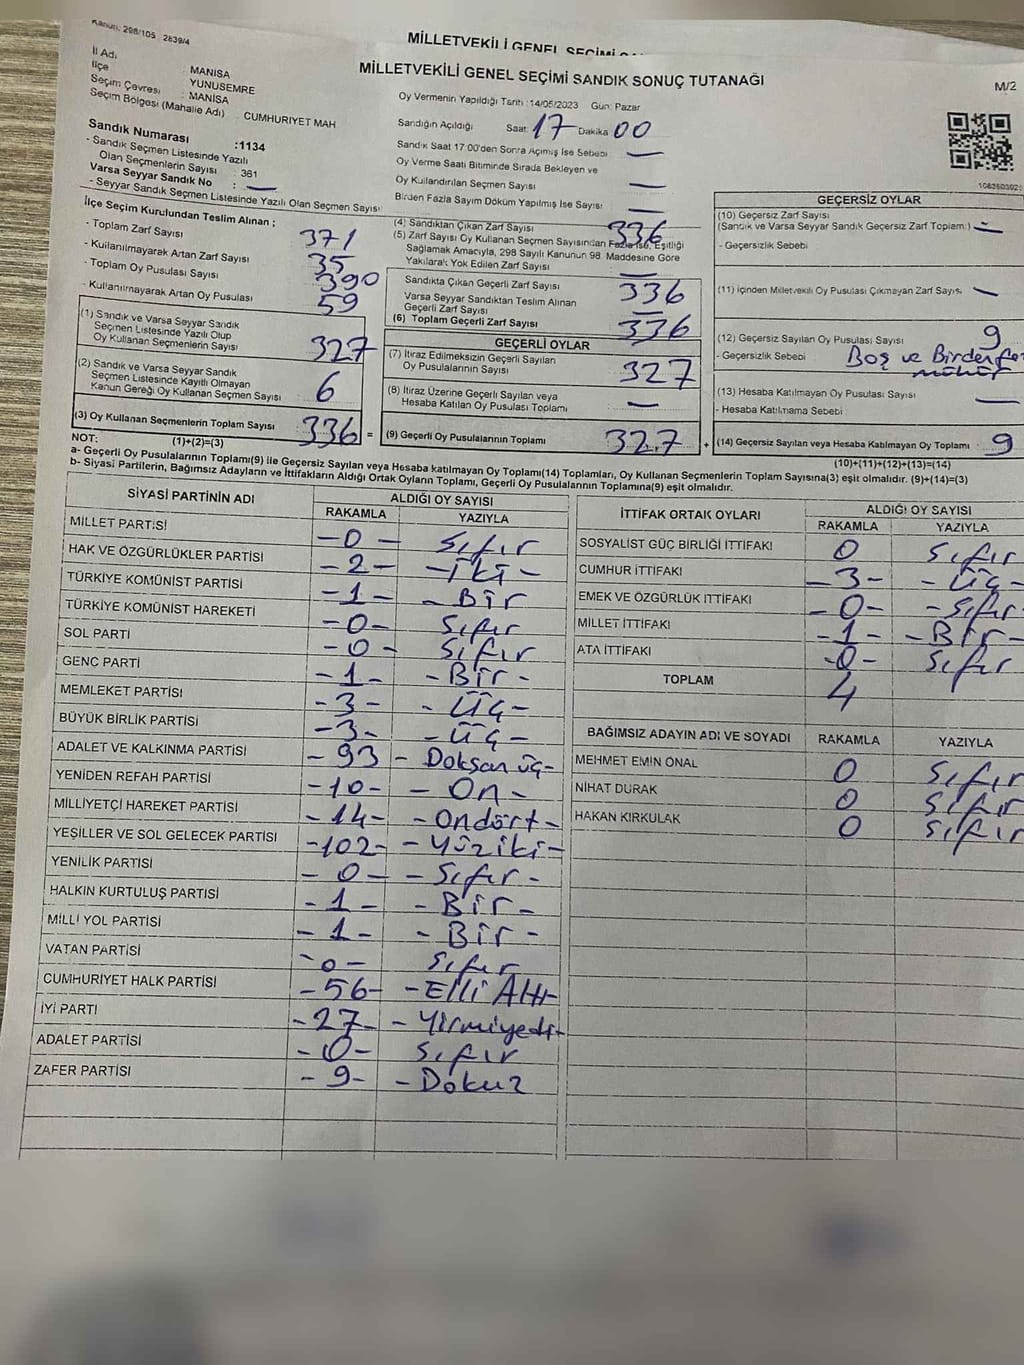 Kanun: 298/105 2839/4
MİLLETVEKİLİ GENEL SEÇİMİ
MİLLETVEKİLİ GENEL SEÇİMİ SANDIK SONUÇ TUTANAĞI
M/2
İl Adı : MANİSA
İlçe : YUNUSEMRE
Seçim Çevresi : MANİSA
Seçim Bölgesi (Mahalle Adı) : CUMHURİYET MAH
Sandık Numarası :1134
- Sandık Seçmen Listesinde Yazılı
Olan Seçmenlerin Sayısı : 361
Varsa Seyyar Sandık No : —
- Seyyar Sandık Seçmen Listesinde Yazılı Olan Seçmen Sayısı
Oy Vermenin Yapıldığı Tarih :14/05/2023 Gün: Pazar
Sandığın Açıldığı Saat: 17 Dakika 00
Sandık Saat 17.00'den Sonra Açılmış İse Sebebi —
Oy Verme Saati Bitiminde Sırada Bekleyen ve
Oy Kullandırılan Seçmen Sayısı —
Birden Fazla Sayım Döküm Yapılmış İse Sayısı —
İlçe Seçim Kurulundan Teslim Alınan ;
- Toplam Zarf Sayısı 371
- Kullanılmayarak Artan Zarf Sayısı 35
- Toplam Oy Pusulası Sayısı 390
- Kullanılmayarak Artan Oy Pusulası 59
(1) Sandık ve Varsa Seyyar Sandık
Seçmen Listesinde Yazılı Olup
Oy Kullanan Seçmenlerin Sayısı 327
(2) Sandık ve Varsa Seyyar Sandık
Seçmen Listesinde Kayıtlı Olmayan
Kanun Gereği Oy Kullanan Seçmen Sayısı 6
(3) Oy Kullanan Seçmenlerin Toplam Sayısı 336 =
(1)+(2)=(3)
(4) Sandıktan Çıkan Zarf Sayısı 336
(5) Zarf Sayısı Oy Kullanan Seçmen Sayısından Fazla ise, Eşitliği
Sağlamak Amacıyla, 298 Sayılı Kanunun 98. Maddesine Göre
Yakılarak Yok Edilen Zarf Sayısı —
Sandıkta Çıkan Geçerli Zarf Sayısı 336
Varsa Seyyar Sandıktan Teslim Alınan
Geçerli Zarf Sayısı —
(6) Toplam Geçerli Zarf Sayısı 336
GEÇERLİ OYLAR
(7) İtiraz Edilmeksizin Geçerli Sayılan
Oy Pusulalarının Sayısı 327
(8) İtiraz Üzerine Geçerli Sayılan veya
Hesaba Katılan Oy Pusulası Toplamı —
(9) Geçerli Oy Pusulalarının Toplamı 327 +
GEÇERSİZ OYLAR
(10) Geçersiz Zarf Sayısı
(Sandık ve Varsa Seyyar Sandık Geçersiz Zarf Toplamı) —
- Geçersizlik Sebebi
(11) İçinden Milletvekili Oy Pusulası Çıkmayan Zarf Sayısı —
(12) Geçersiz Sayılan Oy Pusulası Sayısı 9
- Geçersizlik Sebebi Boş ve Birden
mühür
(13) Hesaba Katılmayan Oy Pusulası Sayısı —
- Hesaba Katılmama Sebebi
(14) Geçersiz Sayılan veya Hesaba Katılmayan Oy Toplamı 9
(10)+(11)+(12)+(13)=(14)
NOT:
a- Geçerli Oy Pusulalarının Toplamı(9) ile Geçersiz Sayılan veya Hesaba katılmayan Oy Toplamı(14) Toplamları, Oy Kullanan Seçmenlerin Toplam Sayısına(3) eşit olmalıdır. (9)+(14)=(3)
b- Siyasi Partilerin, Bağımsız Adayların ve İttifakların Aldığı Ortak Oyların Toplamı, Geçerli Oy Pusulalarının Toplamına(9) eşit olmalıdır.
SİYASİ PARTİNİN ADI ALDIĞI OY SAYISI
RAKAMLA YAZIYLA
MİLLET PARTİSİ -0- Sıfır
HAK VE ÖZGÜRLÜKLER PARTİSİ -2- -İki-
TÜRKİYE KOMÜNİST PARTİSİ -1- -Bir
TÜRKİYE KOMÜNİST HAREKETİ -0- Sıfır
SOL PARTİ -0- Sıfır
GENÇ PARTİ -1- -Bir-
MEMLEKET PARTİSİ -3- -Üç-
BÜYÜK BİRLİK PARTİSİ -3- -Üç-
ADALET VE KALKINMA PARTİSİ -93 -Doksan üç-
YENİDEN REFAH PARTİSİ -10- -On-
MİLLİYETÇİ HAREKET PARTİSİ -14- -Ondört-
YEŞİLLER VE SOL GELECEK PARTİSİ -102- -Yüziki-
YENİLİK PARTİSİ -0- -Sıfır-
HALKIN KURTULUŞ PARTİSİ -1- -Bir-
MİLLİ YOL PARTİSİ -1- -Bir-
VATAN PARTİSİ -0- Sıfır
CUMHURİYET HALK PARTİSİ -56- -Elli Altı-
İYİ PARTİ -27- -Yirmiyedi-
ADALET PARTİSİ -0- Sıfır
ZAFER PARTİSİ -9- -Dokuz
İTTİFAK ORTAK OYLARI ALDIĞI OY SAYISI
RAKAMLA YAZIYLA
SOSYALİST GÜÇ BİRLİĞİ İTTİFAKI 0 Sıfır
CUMHUR İTTİFAKI -3- -Üç-
EMEK VE ÖZGÜRLÜK İTTİFAKI -0- -Sıfır-
MİLLET İTTİFAKI -1- -Bir-
ATA İTTİFAKI -0- Sıfır
TOPLAM 4
BAĞIMSIZ ADAYIN ADI VE SOYADI RAKAMLA YAZIYLA
MEHMET EMİN ÖNAL 0 Sıfır
NİHAT DURAK 0 Sıfır
HAKAN KIRKULAK 0 Sıfır